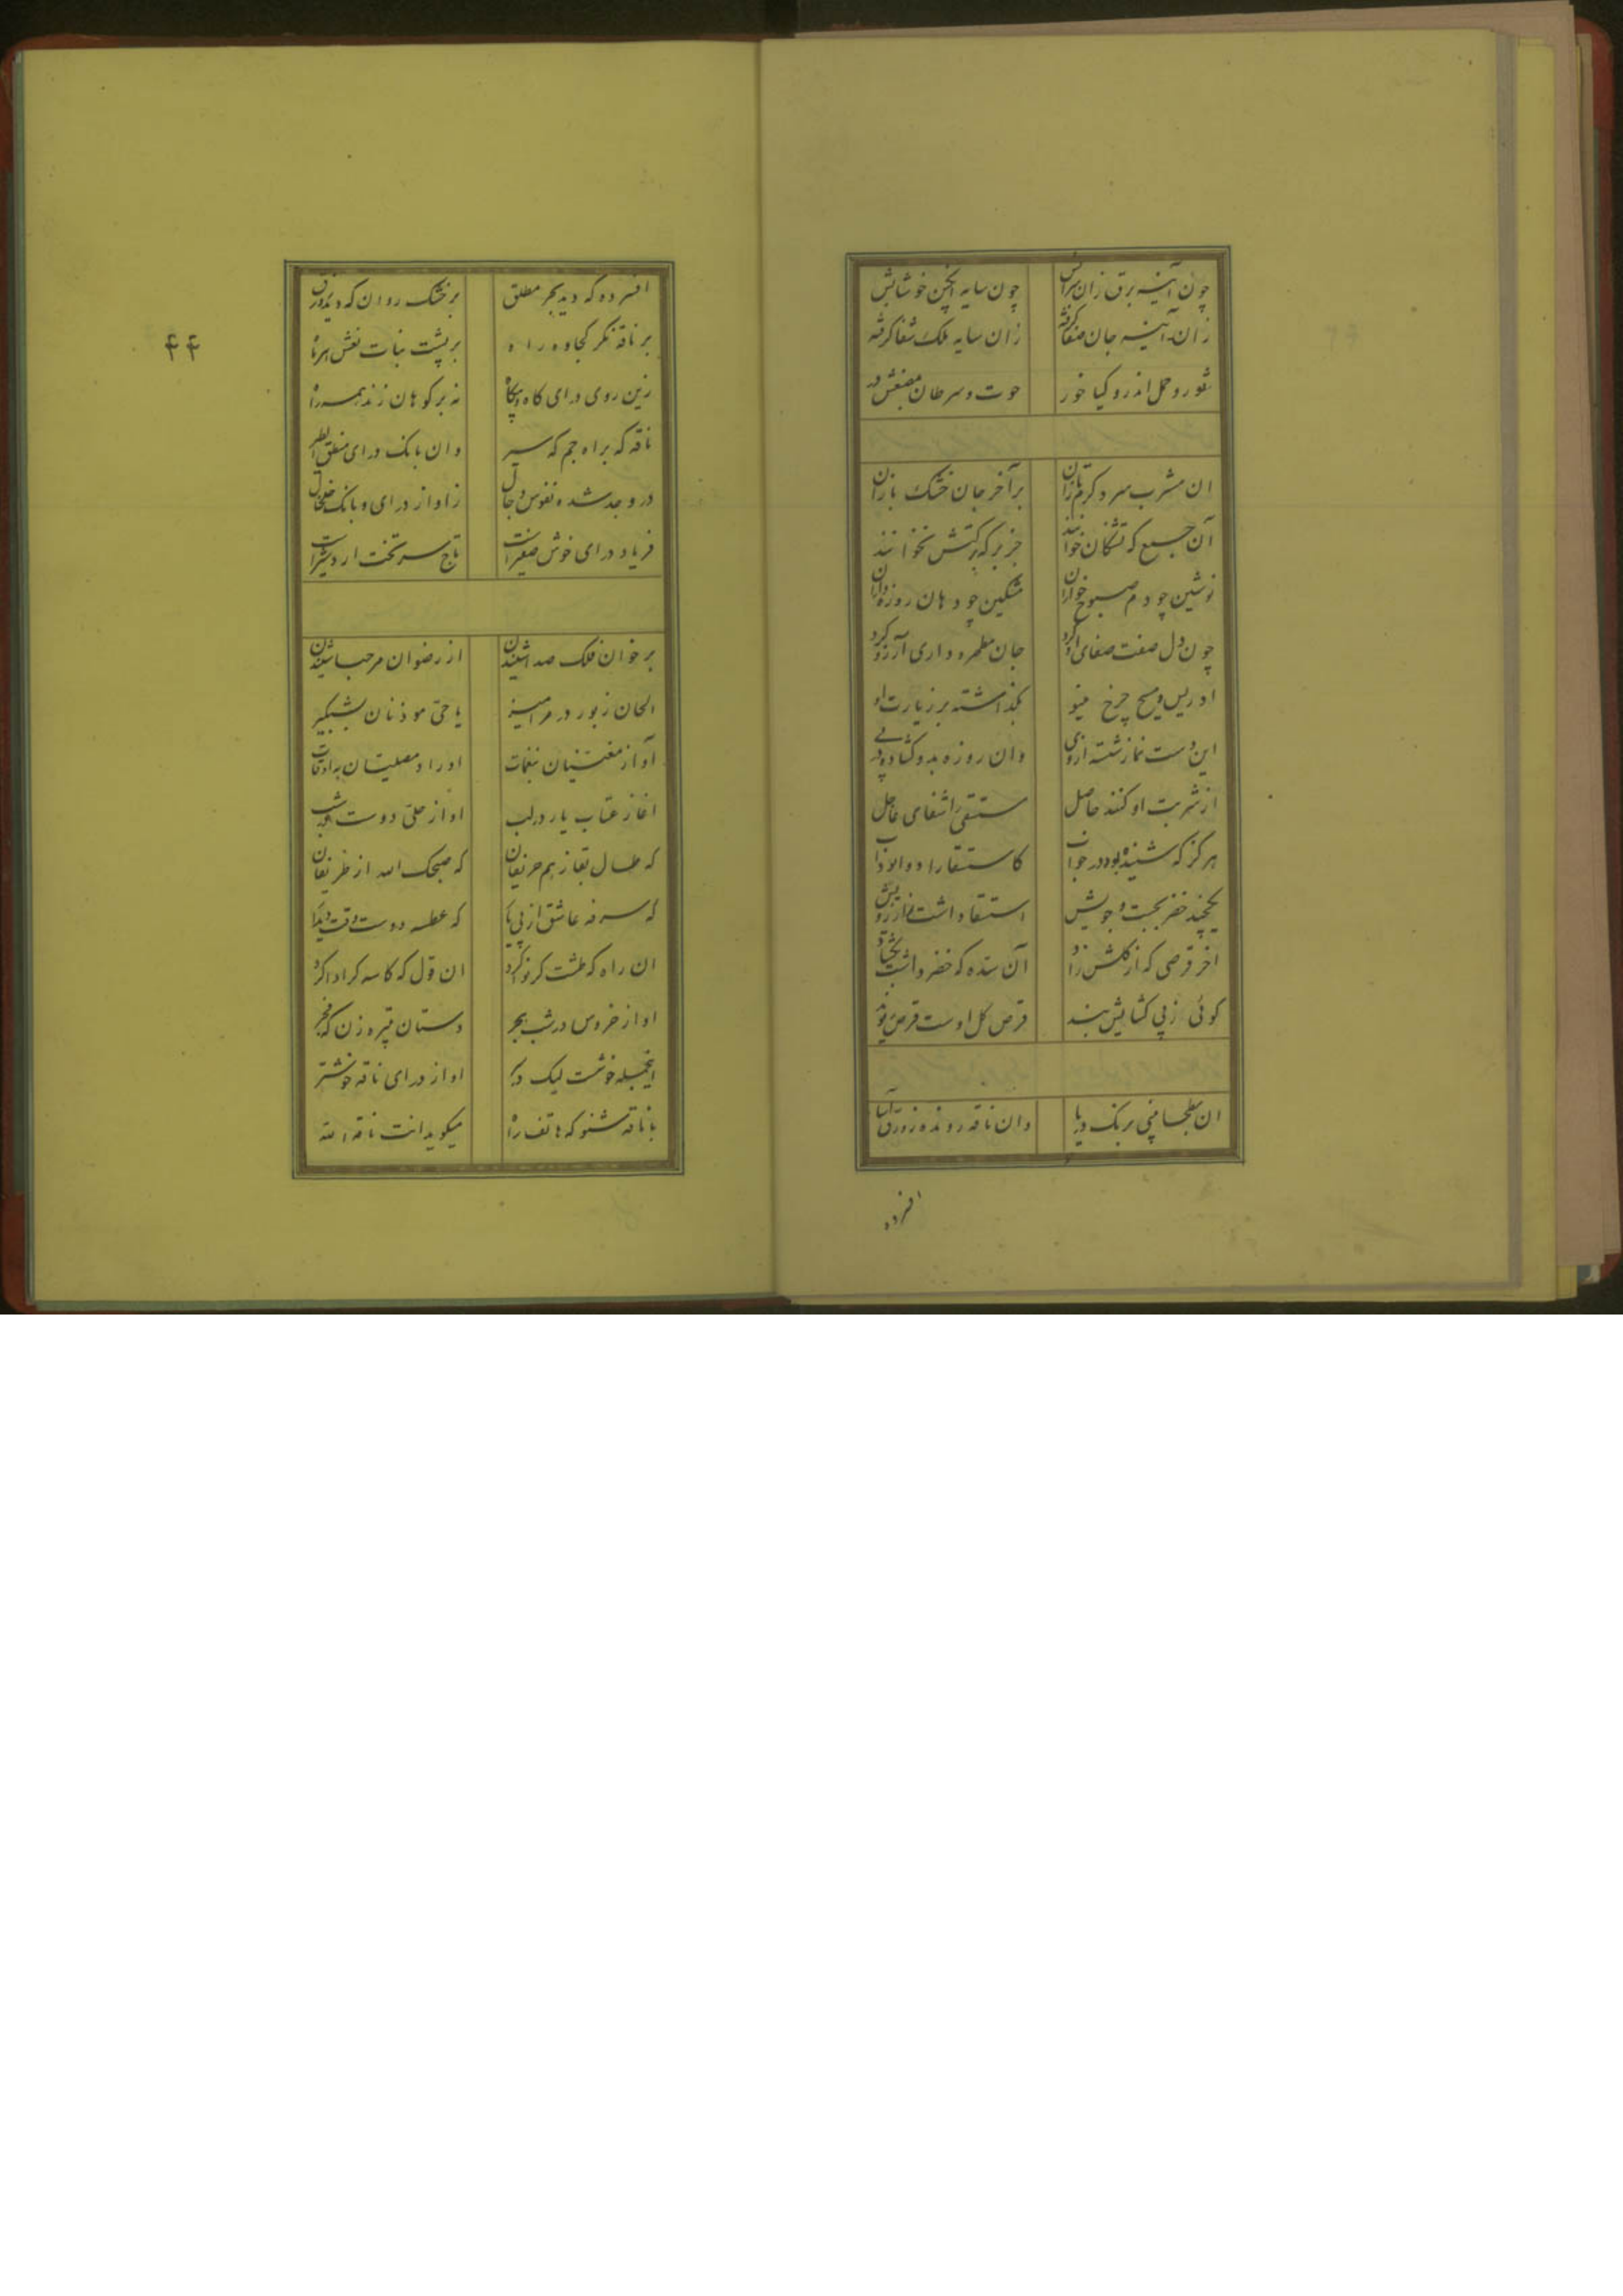 چون آینه برق زان سرابش چون سایه انجمن خوشابش
زان آینه جان صفا گرفته زان سایه ملک شفا گرفته
ثور و حمل اندرو کیا خور حوت و سرطان
ان مشرب سرد کرم تازان برآخر جان خشک بازان
آن جمع که تشنکان خوانند جز برکه نخوانند
نوشین چو دم صبوح خواران مشکین چو دهان روزه داران
چون دل صفت صفای او کرد جان مطهره داری آرزو کرد
ادریس و مسیح چرخ مینو بگذاشته بر زیارت او
این دست نماز شسته از وی وان روزه بدو کشاده
از شربت او کنند حاصل مستسقی را شفای عاجل
هرکز که شنیده بود در خواب کاستسقا را دوا بود آب
یکچند خضر بجست و جویش استسقا داشت ز آرزویش
اخر قرصی که از کلش زاد آن سده که خضر داشت بکشاد
کوئی ز پی کشایش بند قرص کل اوست قرص
ان بطحا بین برنک دریا وان ناقه رونده زورق آسا
افسرده
۴۴
افسرده که دید بحر مطلق بر خشک روان که دید زورق
بر ناقه نکر کجاوه راه بر پشت بنات نعش
زین روی درای کاه و بیکاه نه بر کوهان زند همه راه
ناقه که براه جم که سیر وان بانک درای منطق الطیر
در وجد شده نفوس و جال ز اواز درای و بانک خلخال
فریاد درای خوش صفیر است تاج سر تخت اردشیر است
بر خوان فلک صدا شنیدن از رضوان مرحبا شنیدن
الحان زبور در مزامیر یا حی موذنان شبکیر
آواز مغنیان بنغمات اوراد مصلیان به اوقات
اغاز عتاب یار در لب اواز حلی دوست در شب
که طال بقا ز هم حریفان که صبحک الله از ظریفان
که سرفه عاشق از پی که عطسه دوست وقت دیدار
ان راه که طشت کر نو اکرد ان قول که کاسه کر ادا کرد
اواز خروس در شب هجر دستان تبیره زن که فجر
اینجمله خوشست لیک در اواز درای ناقه خوشتر
با ناقه شنو که هاتف راه میکوید انت ناقة الله